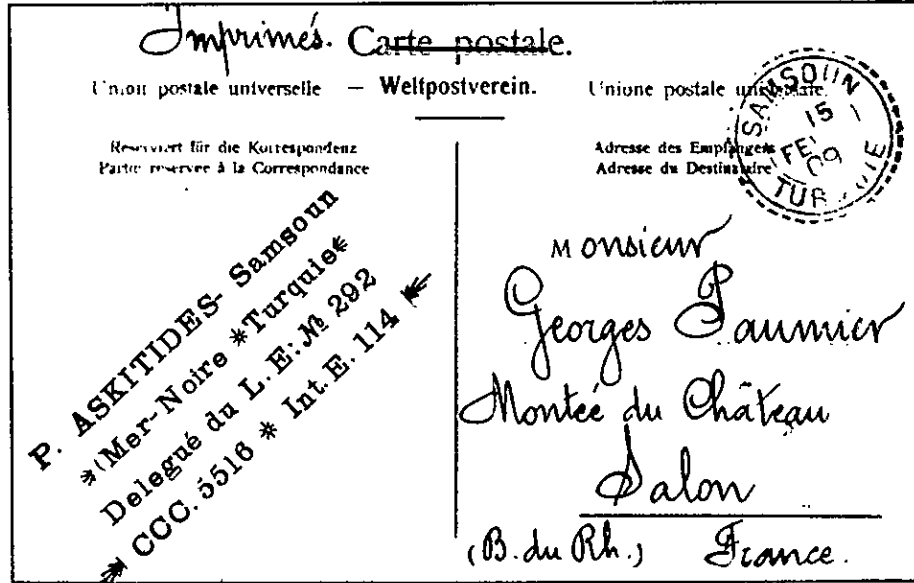 Imprimés. Carte postale.
Union postale universelle — Weltpostverein. Unione postale universale.
Reserviert für die Korrespondenz
Partie reservée à la Correspondance
Adresse des Empfängers
Adresse du Destinataire
SAMSOUN
15
FE
09
TURQUIE
P. ASKITIDES- Samsoun
*(Mer-Noire *Turquie*
Delegué du L. E: № 292
* CCC. 5516 * Int. E. 114 *
Monsieur
Georges Paumier
Monteé du Château
Salon
(B. du Rh.) France.